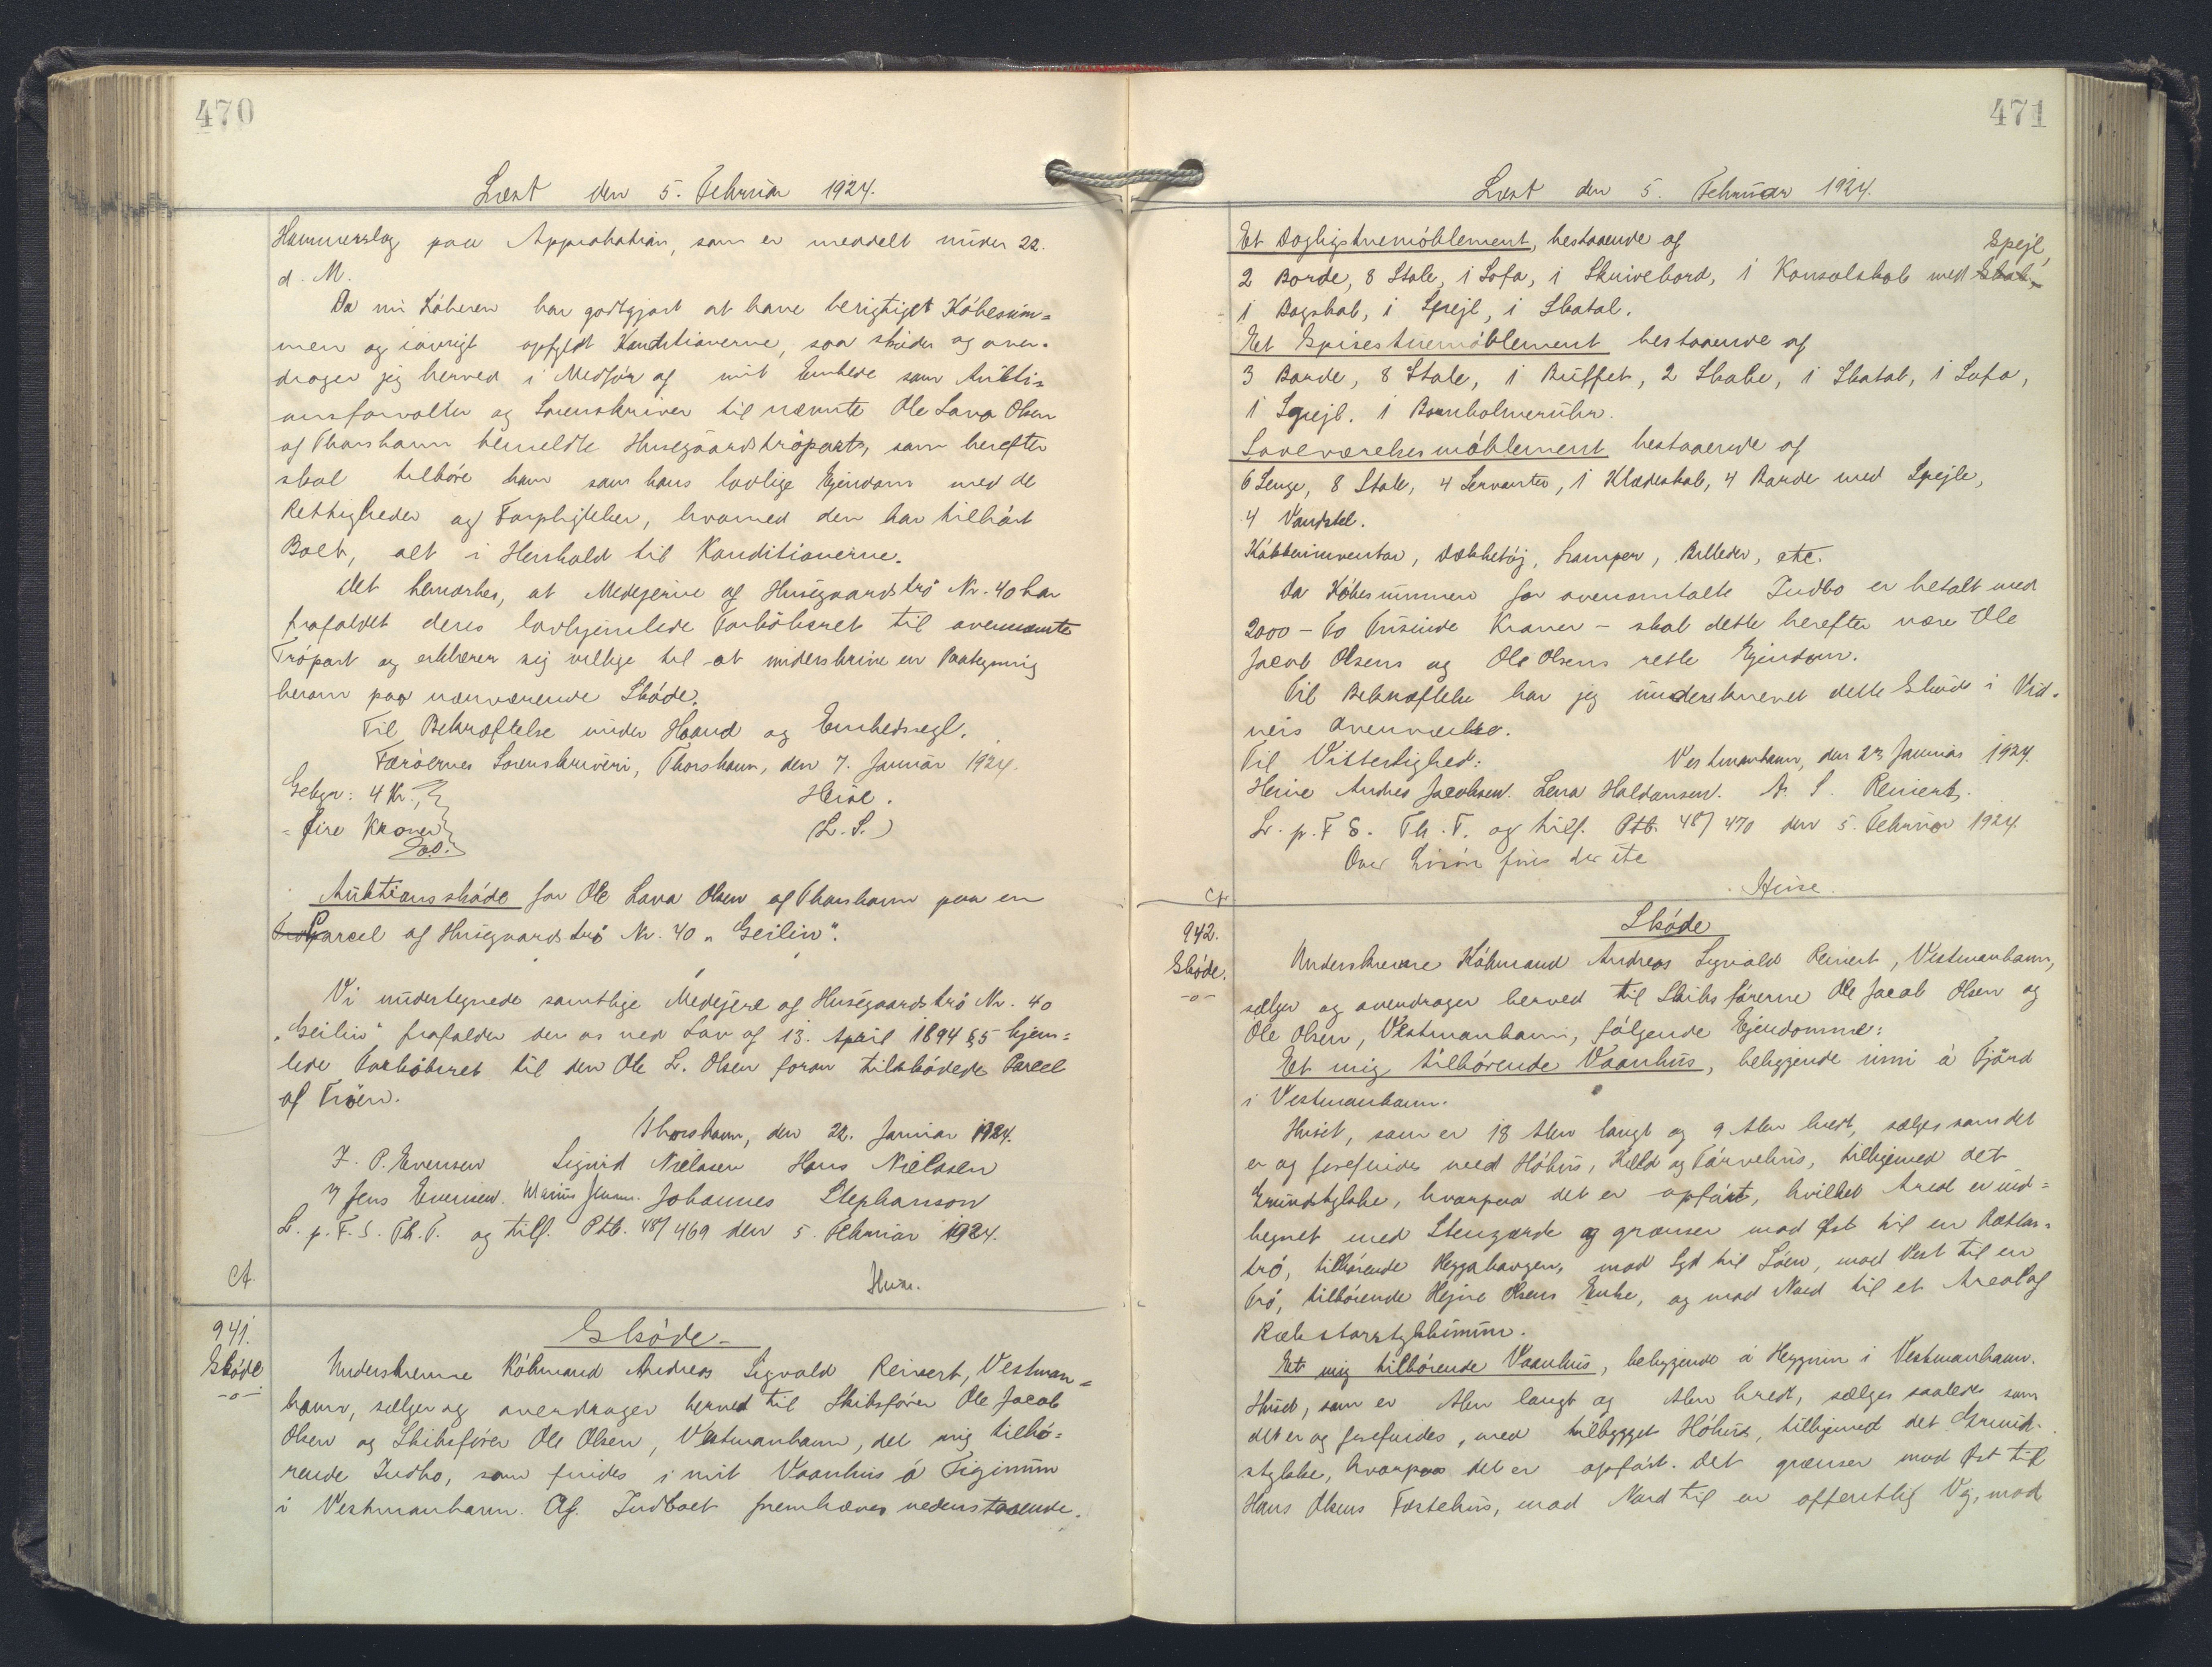 470
Læst den 5. Februar 1924.
Hammerslag paa Approbation, som er meddelt under 22.
d. M.
Da nu Køberen har godtgjort at have berigtiget Købesum=
men og iøvrigt opfyldt Konditionerne, saa skøder og over-
drager jeg herved i Medfør af mit Embede som Aukti=
onsforvalter og Sorenskriver til nævnte Ole Lava Olsen
af Thorshavn bemeldte Husegaardstrøpart, som herefter
skal tilhøre ham som hans lovlige Ejendom med de
Rettigheder og Forpligtelser, hvormed den har tilhørt
Boet, alt i Henhold til Konditionerne.
Det bemærkes, at Medejerne af Husegaardstrø Nr. 40 har
frafaldet deres lovhjemlede Forkøbsret til ovennævnte
Trøpart og erklærer sig villige til at underskrive en Paategning
herom paa nærværende Skøde.
Til Bekræftelse under Haand og Embedssegl.
Færøernes Sorenskriveri, Thorshavn, den 7. Januar 1924.
Gebyr: 4 Kr.
= fire Kroner
Heise.
(L. S.)
Auktionsskøde for Ole Lava Olsen af Thorshavn paa en
Parcel af Husegaardstrø Nr. 40 „Geilin“.
Vi undertegnede samtlige Medejere af Husegaardstrø Nr. 40
„Geilin“ frafalder den os ved Lov af 13. April 1894 § 5 hjem=
lede Forkøbsret til den Ole L. Olsen foran tilskødede Parcel
af Trøen.
Thorshavn, den 22. Januar 1924.
J. P. Evensen Sigurd Nielasen Hans Nielasen
Jens Evensen. Marius Johannes Stephanson
L. p. F. S. Th. T. og tilf. Ptb. 48/469 den 5. Februar 1924.
Heise.
Ct.
941.
Skøde
-o-
Skøde
Underskrevne Købmand Andreas Sigvald Reinert, Vestman=
havn, sælger og overdrager herved til Skibsfører Ole Jacob
Olsen og Skibsfører Ole Olsen, Vestmanhavn, det mig tilhø=
rende Indbo, som findes i mit Vaanhus á Figinum
i Vestmanhavn. Af Indboet fremhæves nedenstaaende.
471
Læst den 5. Februar 1924.
Et Dagligstuemøblement, bestaaende af
2 Borde, 8 Stole, 1 Sofa, 1 Skrivebord, 1 Konsolskab med Skab, Spejl,
1 Bogskab, 1 Spejl, 1 Skatol.
Et Spisestuemøblement bestaaende af
3 Borde, 8 Stole, 1 Buffet, 2 Skabe, 1 Skatol, 1 Sofa,
1 Spejl. 1 Bornholmeruhr.
Soveværelsesmøblement bestaaende af
6 Senge, 8 Stole, 4 Servanter, 1 Klædeskab, 4 Borde med Spejle,
4 Vandstel.
Køkkeninventar, Dækketøj, Lamper, Billeder, etc.
Da Købesummen for ovenomtalte Indbo er betalt med
2000 - To Tusinde Kroner - skal dette herefter være Ole
Jacob Olsens og Ole Olsens rette Ejendom.
Til Bekræftelse har jeg underskrevet dette Skøde i Vid-
ners Overværelse.
Til Vitterlighed: Vestmanhavn, den 23 Januar 1924.
Heine Andres Jacobsen. Lena Haldansen. A. S. Reinert.
L. p. F S. Th. T. og tilf. Ptb. 48/470 den 5. Februar 1924.
Over Lösöre fins der ite
Heise.
Ct.
942.
Skøde.
-o-
Skøde
Underskrevne Købmand Andreas Sigvald Reinert, Vestmanhavn,
sælger og overdrager herved til Skibsførerne Ole Jacob Olsen og
Ole Olsen, Vestmanhavn, følgende Ejendomme:
Et mig tilhørende Vaanhus, beliggende inni á Fjørd
i Vestmanhavn.
Huset, som er 18 Alen langt og 9 Alen bredt, sælges som det
er og forefindes med Høhus, Kelld og Tørvehus, tilligemed det
Grundstykke, hvorpaa det er opført, hvilket Areal er ind=
hegnet med Stengærde og grænser mod Øst til en
trø, tilhørende Heygahaugen, mod Syd til Søen, mod Vest til en
Trø, tilhørende Hejne Olsens Enke, og mod Nord til et Areal af
Et mig tilhørende Vaanhus, beliggende á Heyggnun i Vestmanhavn.
Huset, som er Alen langt og Alen bredt, sælges saaledes som
det er og forefindes, med tilbygget Høhus, tilligemed det Grund-
stykke, hvorpaa det er opført. Det grænser mod Øst til
Hans Olsens Fæstehus, mod Nord til en offentlig Vej, mod